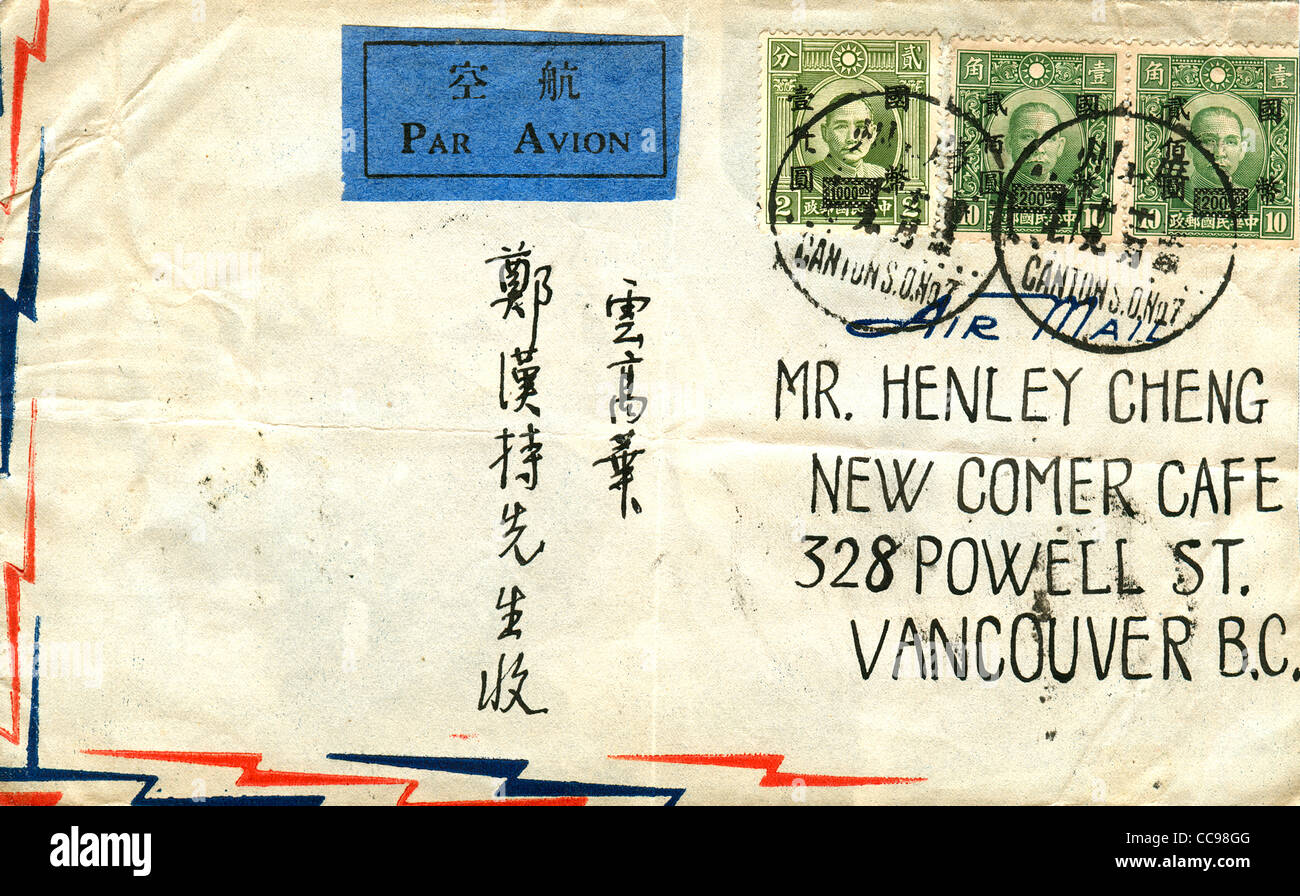 航空
PAR AVION
貳分
國幣
壹仟圓
1000⁰⁰
2
2
中華民國郵政
壹角
國幣
貳佰圓
200⁰⁰
10
10
中華民國郵政
壹角
國幣
貳佰圓
200⁰⁰
10
10
中華民國郵政
CANTON S.O.No.7
CANTON S.O.No.7
AIR MAIL
MR. HENLEY CHENG
NEW COMER CAFE
328 POWELL ST.
VANCOUVER B.C.
雲高華
鄭漢持先生收
alamy
Image ID: CC98GG
www.alamy.com